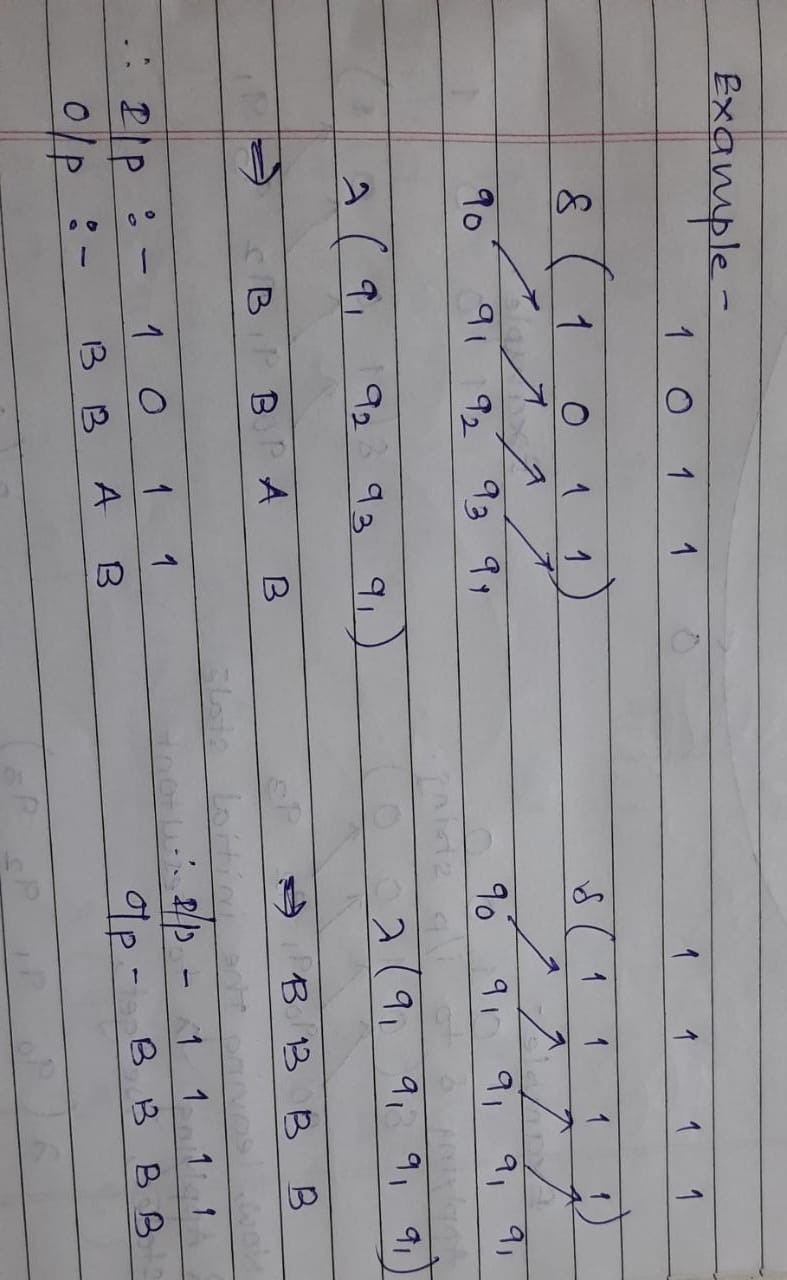 Example -
1 0 1 1
δ ( 1 0 1 1 )
q0 q1 q2 q3 q1
λ ( q1 q2 q3 q1 )
⇒ B B A B
∴ I/p :- 1 0 1 1
O/p :- B B A B
1 1 1 1
δ ( 1 1 1 1 )
q0 q1 q1 q1 q1
λ ( q1 q1 q1 q1 )
⇒ B B B B
∴ I/p - 1 1 1 1
O/p - B B B B